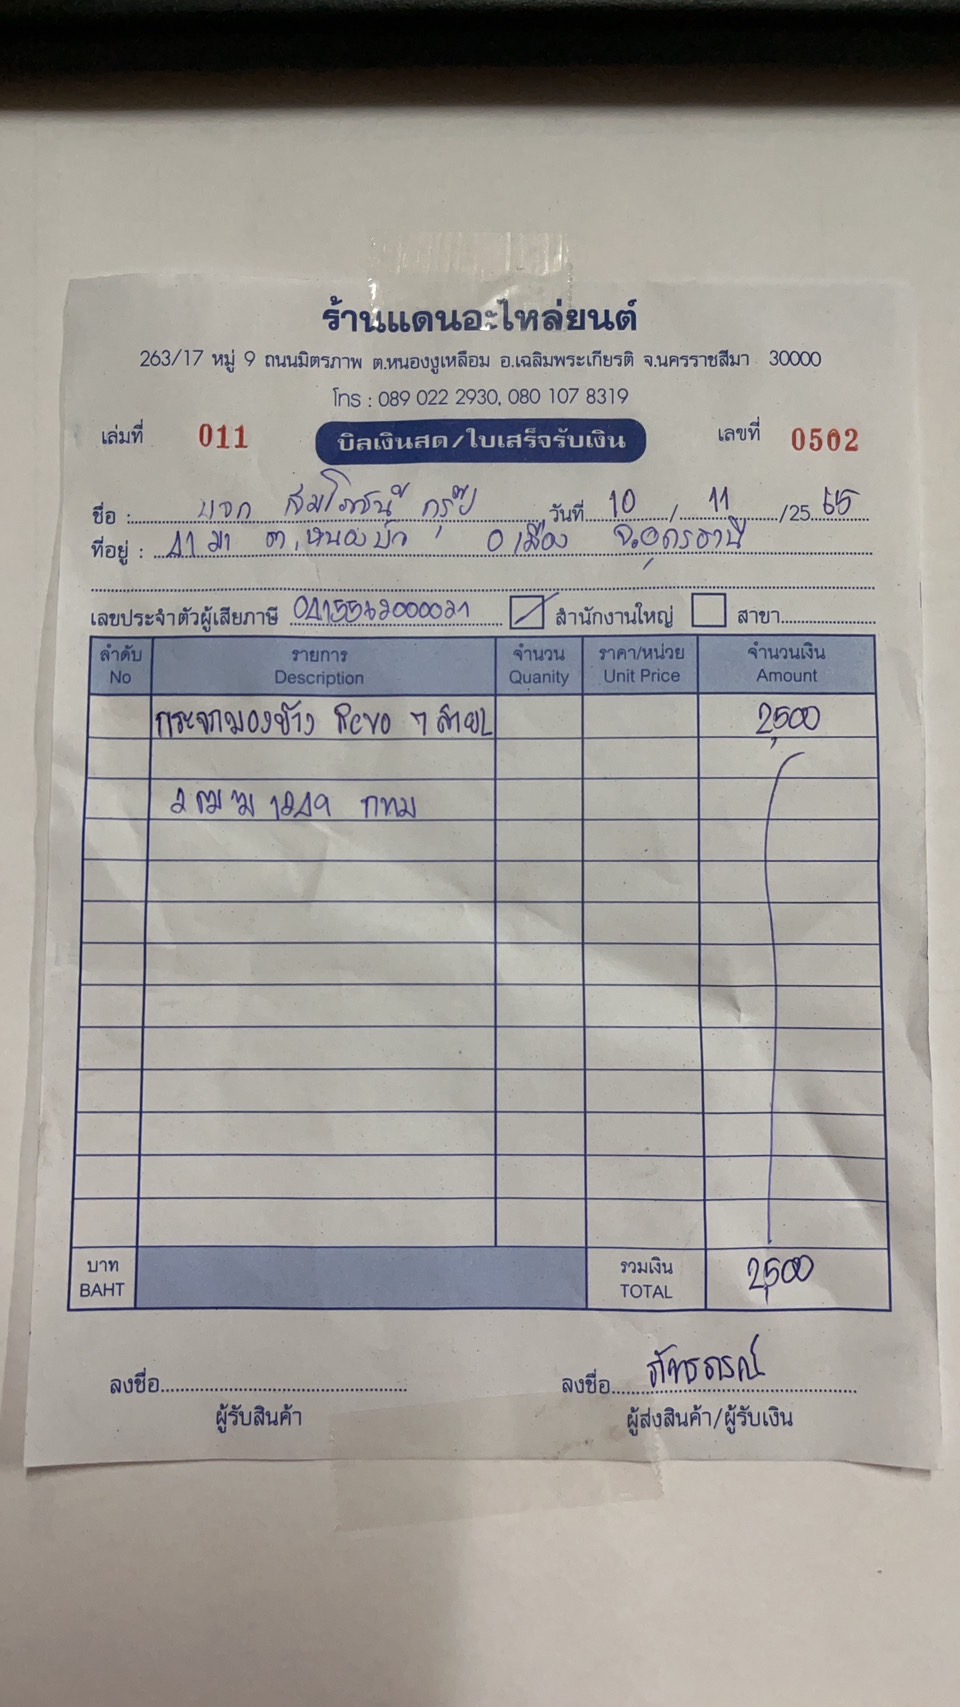 ร้านแดนอะไหล่ยนต์
263/17 หมู่ 9 ถนนมิตรภาพ ต.หนองงูเหลือม อ.เฉลิมพระเกียรติ จ.นครราชสีมา 30000
โทร : 089 022 2930, 080 107 8319
เล่มที่ 011 บิลเงินสด/ใบเสร็จรับเงิน เลขที่ 0502
ชื่อ : บจก สมโภชน์ กรุ๊ป วันที่ 10 / 11 /25 65
ที่อยู่ : ต.หนองบัว อ เมือง จ.อุดรธานี
เลขประจำตัวผู้เสียภาษี สำนักงานใหญ่ สาขา
ลำดับ รายการ จำนวน ราคา/หน่วย จำนวนเงิน
No Description Quanity Unit Price Amount
กระจกมองข้าง Revo 7 สาย L 2,500
2 ฒฆ 1249 กทม
บาท รวมเงิน
BAHT TOTAL 2,500
ลงชื่อ ลงชื่อ
ผู้รับสินค้า ผู้ส่งสินค้า/ผู้รับเงิน